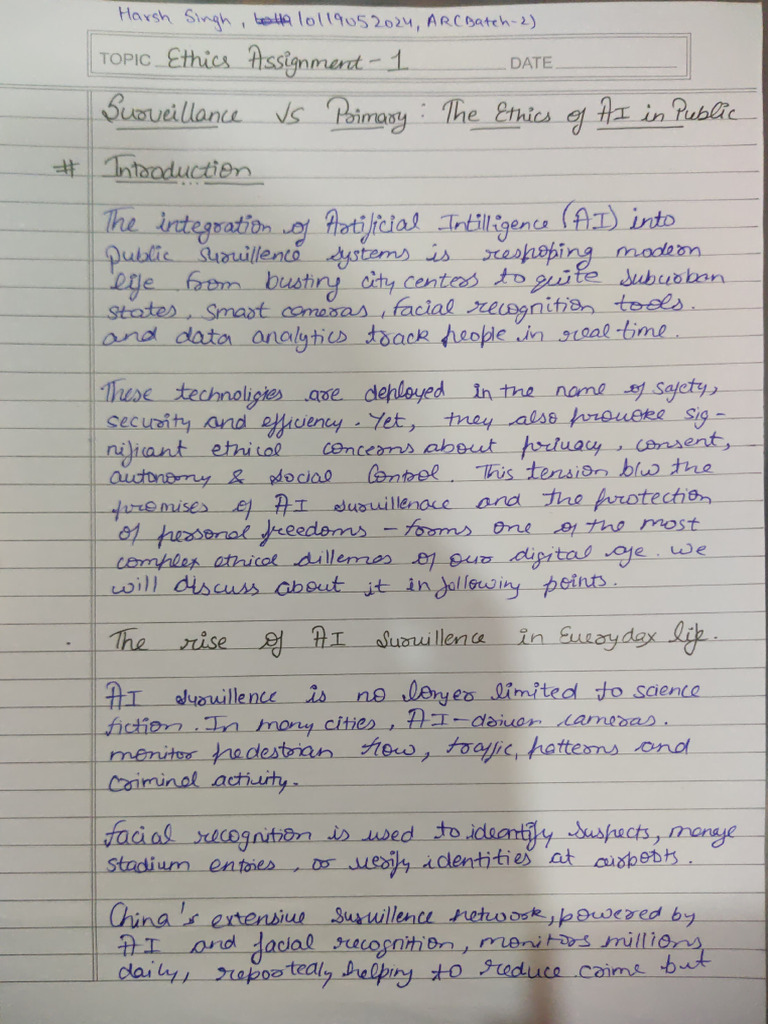 Harsh Singh, 10119052024, AR(Batch-2)
TOPIC Ethics Assignment - 1 DATE
Surveillance Vs Primary : The Ethics of AI in Public
# Introduction
The integration of Artificial Intilligence (AI) into
public survillence systems is reshoping modern
life from busting city centers to quite suburban
states, smart cameras, facial recognition tools.
and data analytics track people in real-time.
These technoligies are deployed in the name of safety,
security and efficiency. Yet, they also provoke sig-
nificant ethical concerns about privacy, consent,
autonomy & social Control. This tension b/w the
promises of AI survillenace and the protection
of personal freedoms - forms one of the most
complex ethical dillemes of our digital age. we
will discuss about it in following points.
. The rise of AI Survillence in Everyday life.
AI survillence is no longer limited to science
fiction. In many cities, AI-driven cameras.
monitor pedestrian flow, traffic, patterns and
criminal activity.
facial recognition is used to identify suspects, manage
stadium entries, or verify identities at airports.
China's extensive survillence network, powered by
AI and facial recognition, monitors millions
daily, reportealy helping to reduce crime but